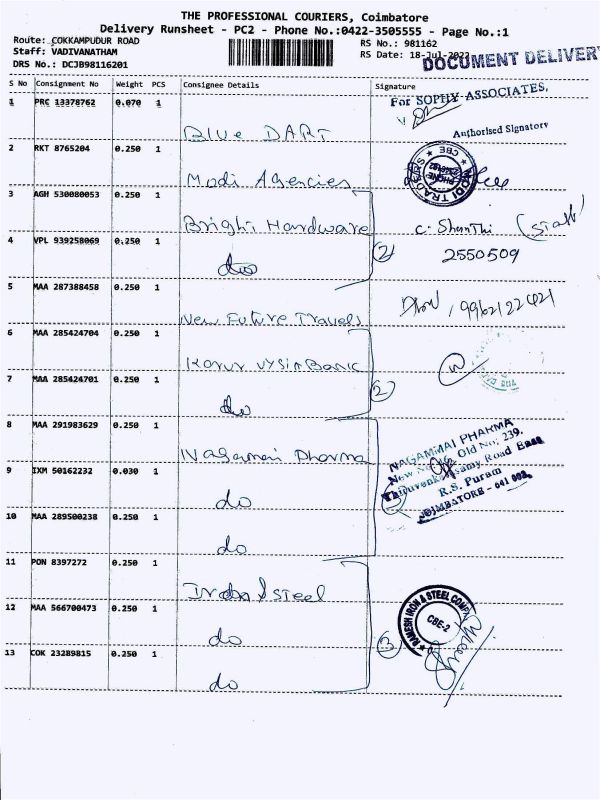 THE PROFESSIONAL COURIERS, Coimbatore
Delivery Runsheet - PC2 - Phone No.:0422-3505555 - Page No.:1
Route: COKKAMPUDUR ROAD
Staff: VADIVANATHAM
DRS No.: DCJB98116201
RS No.: 981162
RS Date: 18-Jul-2022
DOCUMENT DELIVERY
S No Consignment No Weight PCS Consignee Details Signature
1 PRC 13378762 0.070 1 Blue DART
For SOPHY ASSOCIATES,
Authorised Signatory
2 RKT 8765204 0.250 1 Modi Agencies
MODI TRADERS
PHONE
CBE
3 AGH 530080053 0.250 1 Bright Hardware
C. Shanthi (Staff)
4 VPL 939258069 0.250 1 do
2 2550509
5 MAA 287388458 0.250 1 New Future Travels
6 MAA 285424704 0.250 1 Karur Vysia Bank
7 MAA 285424701 0.250 1 do
2
8 MAA 291983629 0.250 1 Nagamai Pharma
NAGAMMAI PHARMA
Old No: 239,
Road East
R.S. Puram
COIMBATORE - 641 002.
9 IXM 50162232 0.030 1 do
3
10 MAA 289500238 0.250 1 do
11 PON 8397272 0.250 1 Steel
12 MAA 566700473 0.250 1 do
RAMESH IRON & STEEL COMPANY
CBE-2
3
13 COK 23289815 0.250 1 do